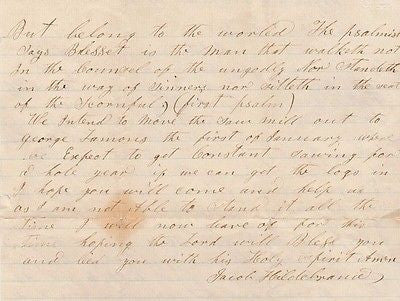 But belong to the worled The psalmist
Says Blesset is the man that walketh not
in the Counsel of the ungodly Nor Standeth
in the way of Sinners nor sitteth in the seat
of the Scornful, (first psalm)
We Intend to Move the Saw mill out to
george Famous the first of January where
we Expect to get Constant sawing for
a hole year if we can get the logs in
I hope you will come and help us
as I am not able to stand it all the
time I will now leave of for this
time hoping the Lord will Bless you
and lied you with his Holy Spirit Amen
Jacob Hildebrand